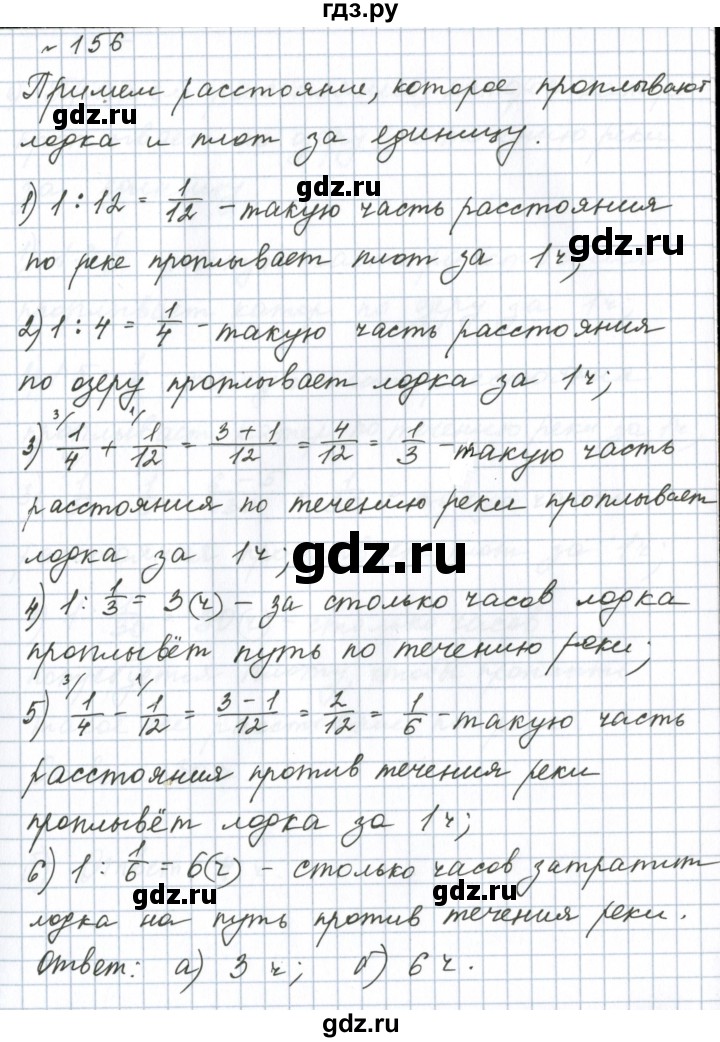 гдз.ру
№ 156
Примем расстояние, которое проплывают
лодка и плот за единицу.
gdz.ru
gdz.ru
1) 1 : 12 = 1/12 - такую часть расстояния
gdz.ru
по реке проплывает плот за 1 ч;
2) 1 : 4 = 1/4 - такую часть расстояния
по озеру проплывает лодка за 1 ч;
3) 1/4 (3/ + 1/12 (1/ = 3+1/12 = 4/12 = 1/3 - такую часть
расстояния по течению реки проплывает
лодка за 1 ч;
gdz.ru
4) 1 : 1/3 = 3 (ч) - за столько часов лодка
проплывёт путь по течению реки;
5) 1/4 (3/ - 1/12 (1/ = 3-1/12 = 2/12 = 1/6 - такую часть
расстояния против течения реки
проплывёт лодка за 1 ч;
6) 1 : 1/6 = 6 (ч) - столько часов затратит
gdz.ru
gdz.ru
лодка на путь против течения реки.
Ответ: а) 3 ч; б) 6 ч.
gdz.ru
gdz.ru